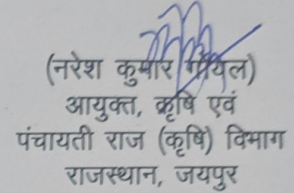 (नरेश कुमार गोयल)
आयुक्त, कृषि एवं
पंचायती राज (कृषि) विभाग
राजस्थान, जयपुर